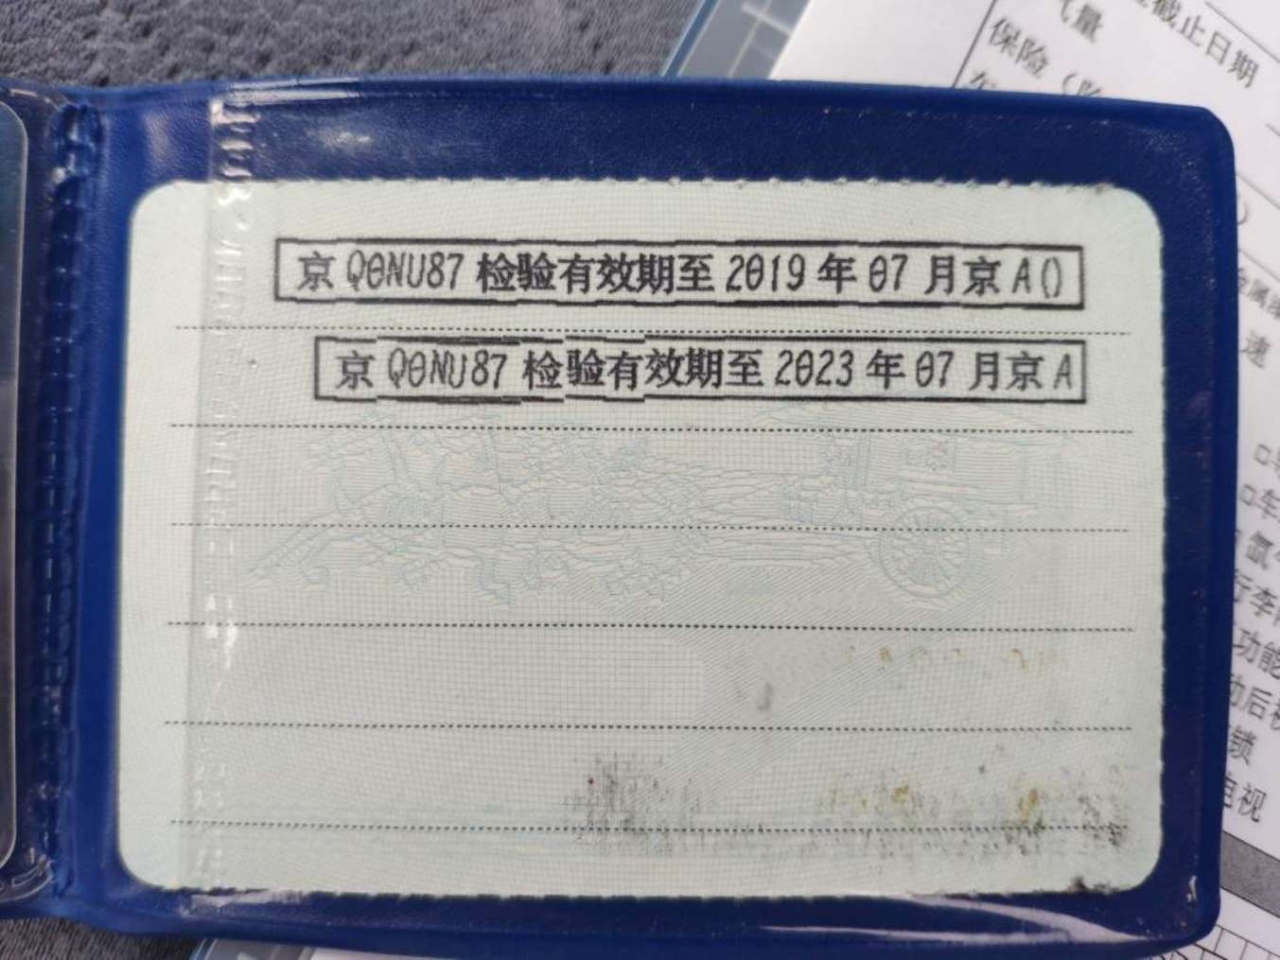 截止日期
气量
保险
京 Q0NU87 检验有效期至 2019 年 07 月京 A()
京 Q0NU87 检验有效期至 2023 年 07 月京 A
速
□车
行李
功能
动后视
锁
电视